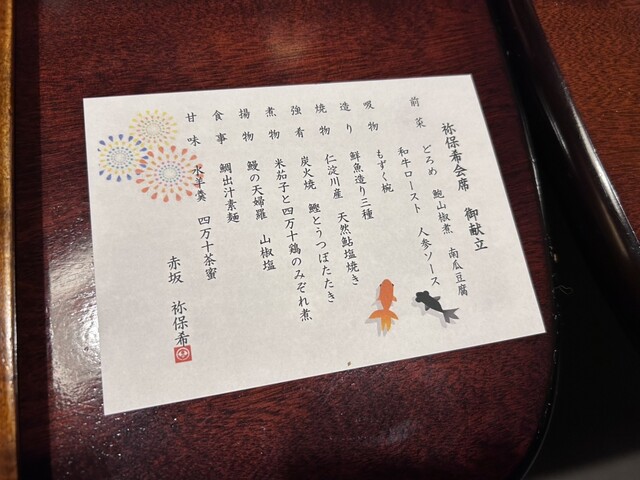 祢保希会席　御献立
前菜　どろめ　鮑山椒煮　南瓜豆腐
和牛ロースト　人参ソース
吸物　もずく椀
造り　鮮魚造り三種
焼物　仁淀川産　天然鮎塩焼き
強肴　炭火焼　鰹とうつぼたたき
煮物　米茄子と四万十鶏のみぞれ煮
揚物　鰻の天婦羅　山椒塩
食事　鯛出汁素麺
甘味　水羊羹　四万十茶蜜
赤坂　祢保希